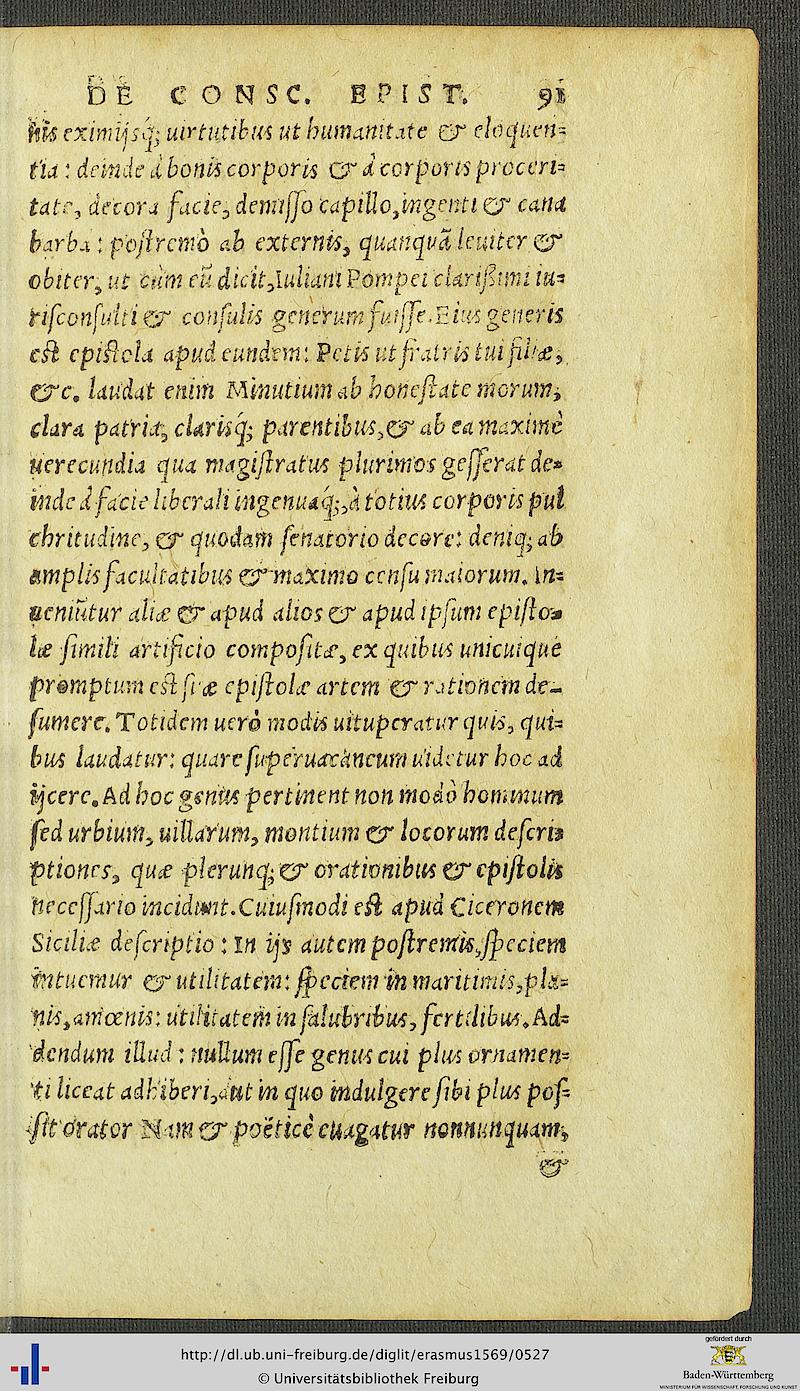 DE CONSC. EPIST. 91
nis eximijsq́; uirtutibus ut humanitate & eloquen=
tia: deinde à bonis corporis & à corporis proceri=
tate, decora facie, demisso capillo, ingenti & cana
barba: postremò ab externis, quanquā leuiter &
obiter, ut cùm eū dicit, Iuliani Pompei clarißimi iu=
risconsulti & consulis generum fuisse. Eius generis
est epistola apud eundem: Petis ut fratris tui filiæ,
&c. laudat enim Minutium ab honestate morum,
clara patria, clarisq́; parentibus, & ab ea maximè
uerecundia qua magistratus plurimos gesserat de=
inde à facie liberali ingenuaq́;, à totius corporis pul
chritudine, & quodam senatorio decore: deniq; ab
amplis facultatibus & maximo censu maiorum. In=
ueniūtur aliæ & apud alios & apud ipsum episto=
læ simili artificio compositæ, ex quibus unicuique
promptum est suæ epistolæ artem & rationem de=
sumere. Totidem uerò modis uituperatur quis, qui=
bus laudatur: quare superuacaneum uidetur hoc ad
ijcere. Ad hoc genus pertinent non modò hominum
sed urbium, uillarum, montium & locorum descri=
ptiones, quæ plerunq; & orationibus & epistolis
necessario incidunt. Cuiusmodi est apud Ciceronem
Siciliæ descriptio: In ijs autem postremis, speciem
intuemur & utilitatem: speciem in maritimis, pla=
nis, amœnis: utilitatem in salubribus, fertilibus. Ad=
dendum illud: nullum esse genus cui plus ornamen=
ti liceat adhiberi, aut in quo indulgere sibi plus pos=
sit orator Nam & poëticè euagatur nonnunquam,
&
http://dl.ub.uni-freiburg.de/diglit/erasmus1569/0527
© Universitätsbibliothek Freiburg
gefördert durch
Baden-Württemberg
MINISTERIUM FÜR WISSENSCHAFT, FORSCHUNG UND KUNST